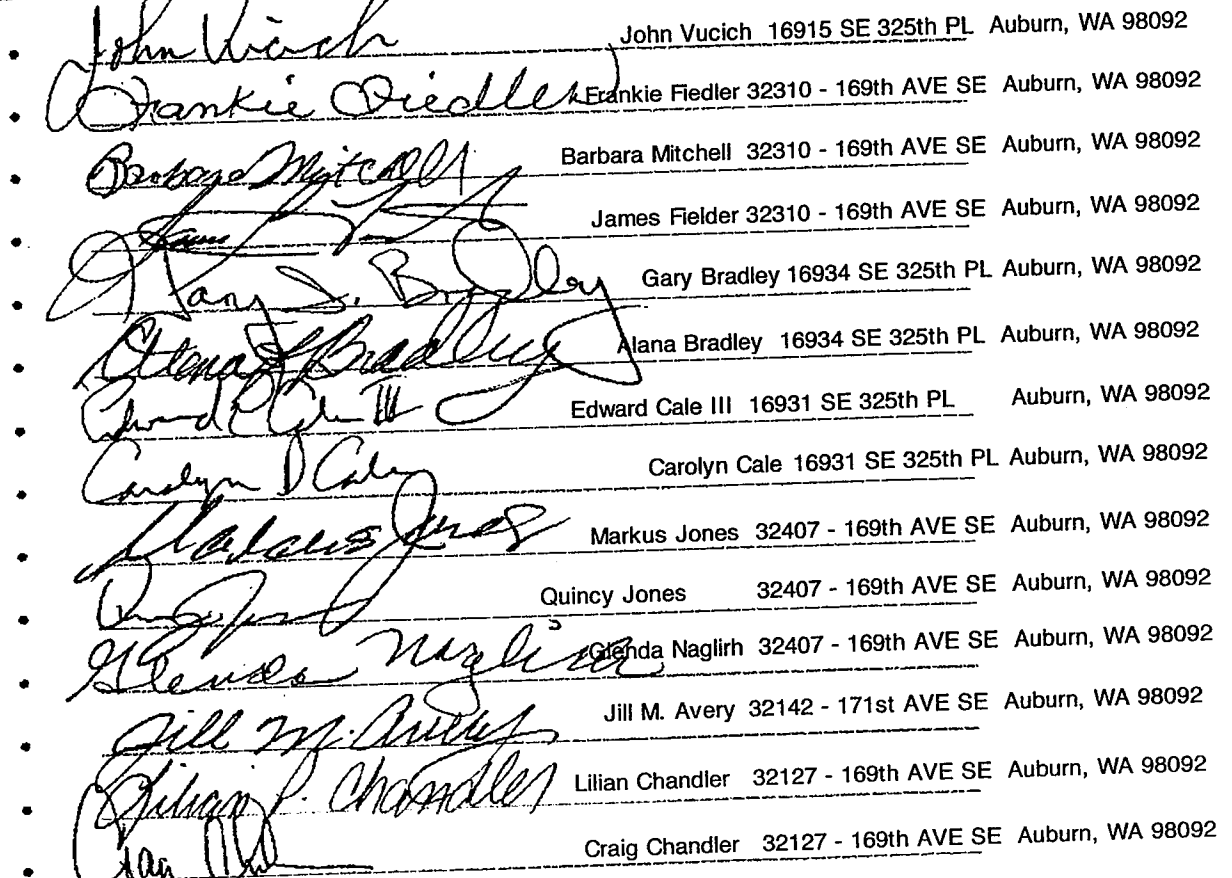 John Vucich John Vucich 16915 SE 325th PL Auburn, WA 98092
Frankie Fiedler Frankie Fiedler 32310 - 169th AVE SE Auburn, WA 98092
Barbara Mitchell Barbara Mitchell 32310 - 169th AVE SE Auburn, WA 98092
James Fielder 32310 - 169th AVE SE Auburn, WA 98092
Gary S. Bradley Gary Bradley 16934 SE 325th PL Auburn, WA 98092
Alana Bradley Alana Bradley 16934 SE 325th PL Auburn, WA 98092
Edward P Cale III Edward Cale III 16931 SE 325th PL Auburn, WA 98092
Carolyn D Cale Carolyn Cale 16931 SE 325th PL Auburn, WA 98092
Markus Jones Markus Jones 32407 - 169th AVE SE Auburn, WA 98092
Quincy Jones 32407 - 169th AVE SE Auburn, WA 98092
Glenda Naglirh Glenda Naglirh 32407 - 169th AVE SE Auburn, WA 98092
Jill M. Avery Jill M. Avery 32142 - 171st AVE SE Auburn, WA 98092
Lilian P. Chandler Lilian Chandler 32127 - 169th AVE SE Auburn, WA 98092
Craig Chandler 32127 - 169th AVE SE Auburn, WA 98092